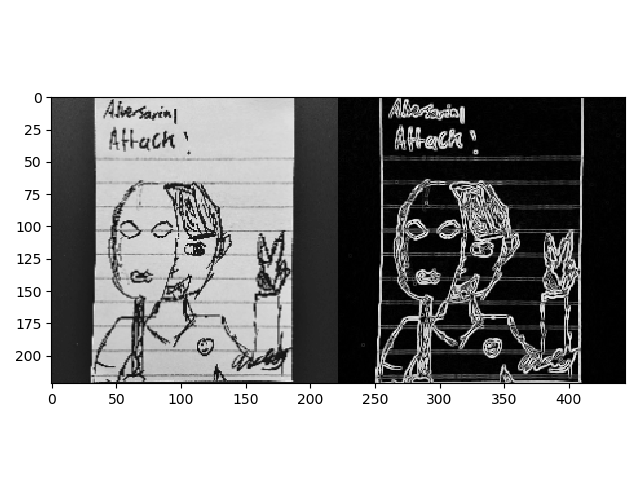 0
Adversarial Adversarial
25
Attack! Attack!
50
75
100
125
150
175
200
0 50 100 150 200 250 300 350 400